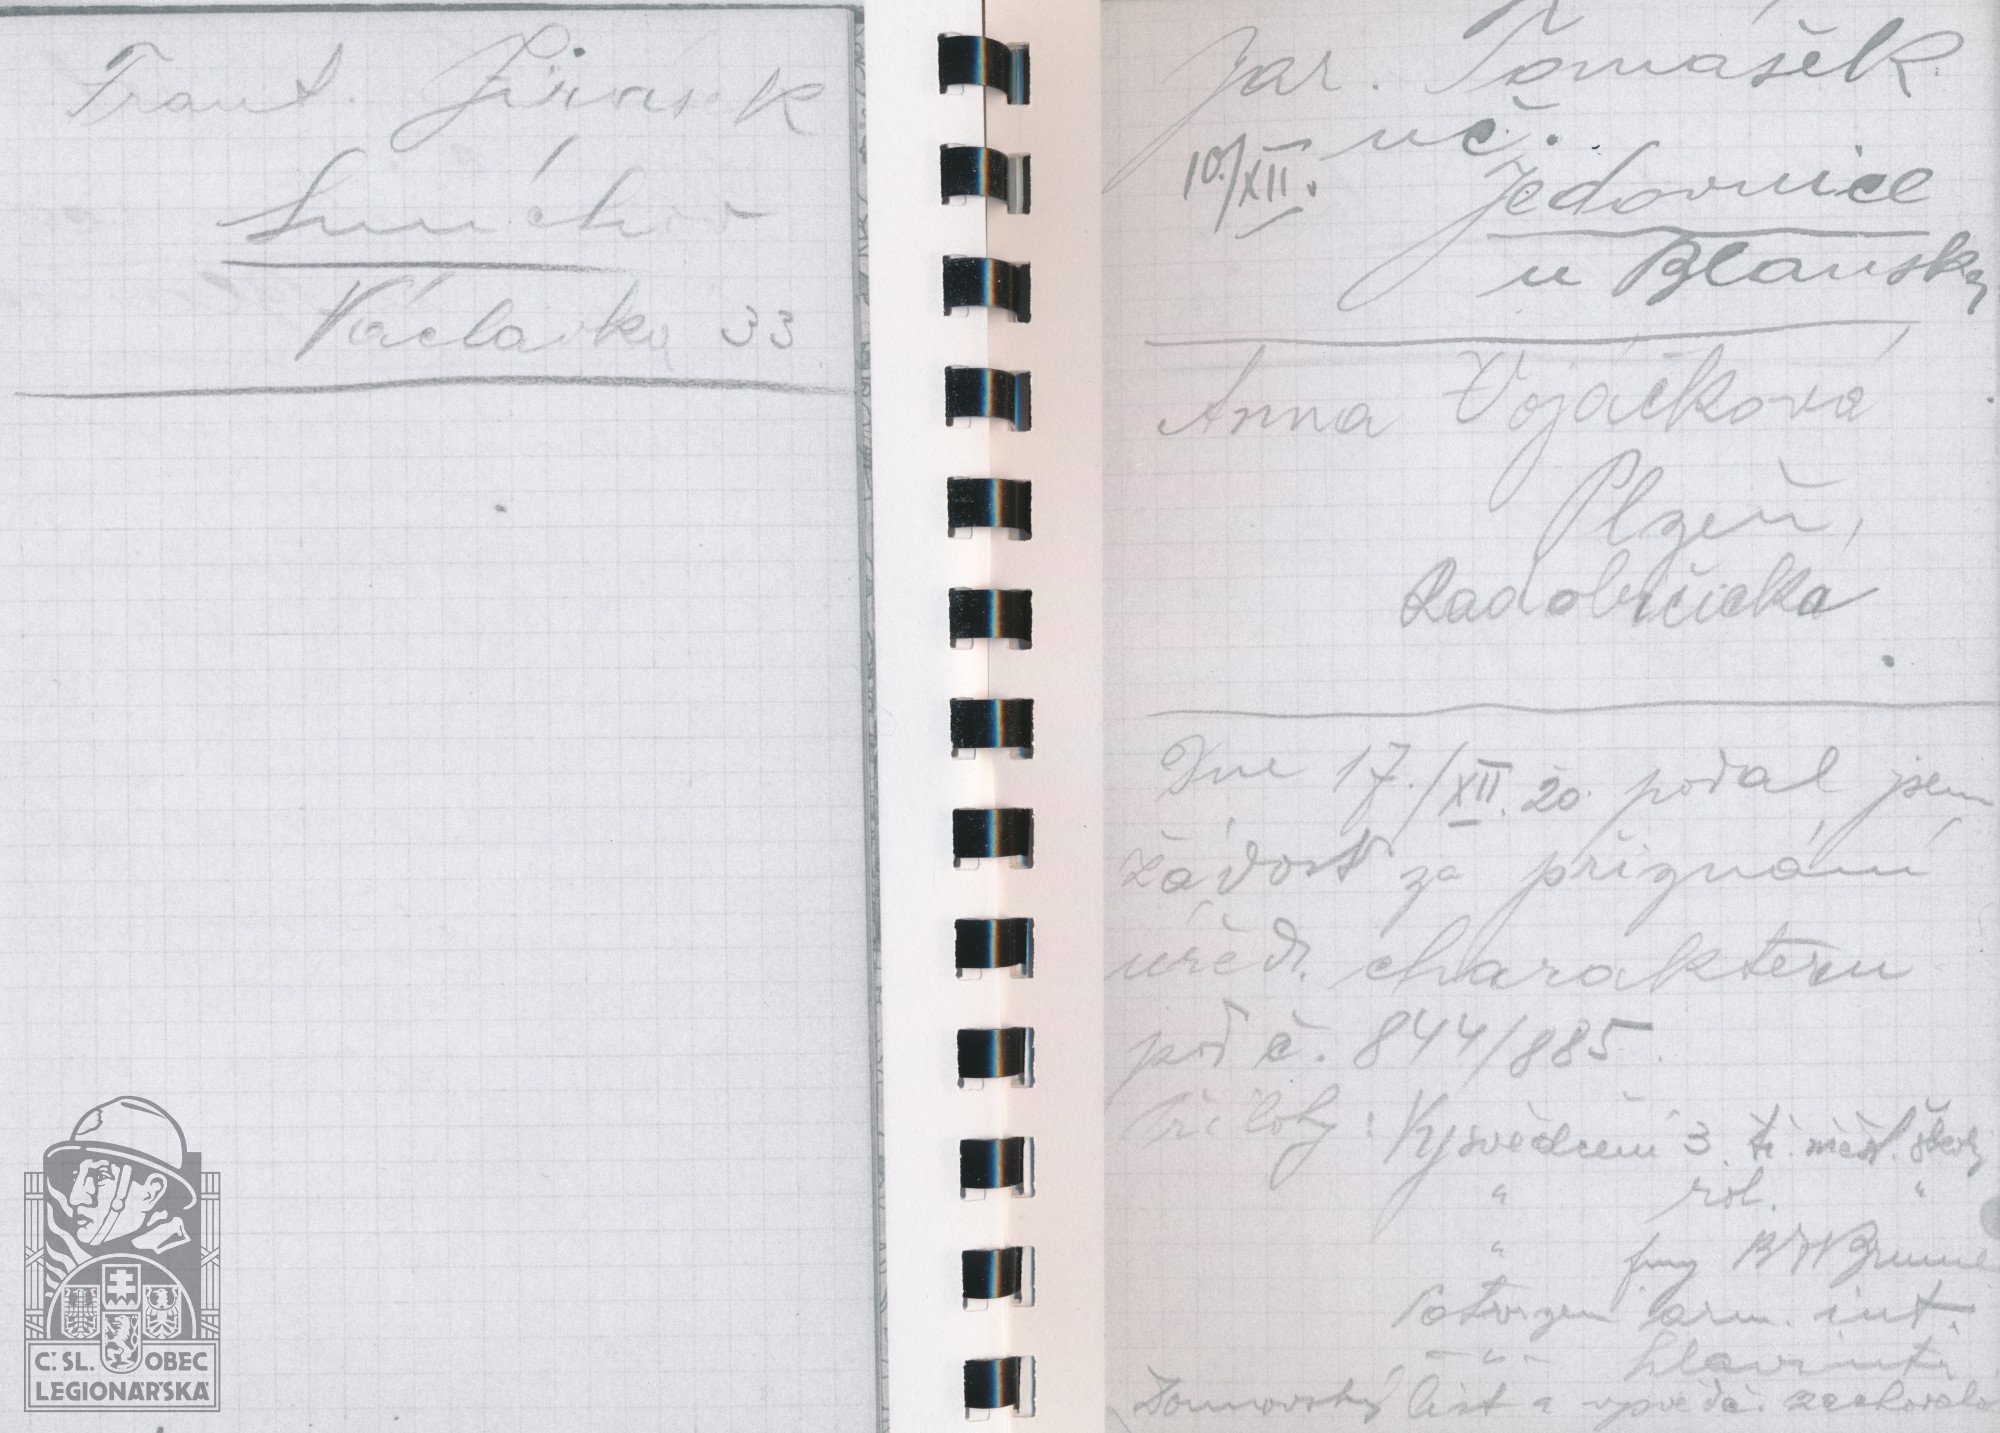 Frant. Jirásek
Smíchov
Václavka 33
Jar. Tomášek
uč.
10./XII.
Jedovnice
u Blanska
Anna Vojáčková
Plzeň,
Radobyčická
Dne 17./XII. 20. podal jsem
žádost za přiznání
úřed. charakteru
pod č. 844/885.
Přílohy: Vysvědčení 3. tř. měšť. školy
" rol. "
" fmy
Potvrzení arm. int.
- " - hlav. int.
Domovský list a zachovalosti
Č.SL. OBEC
LEGIONÁŘSKÁ